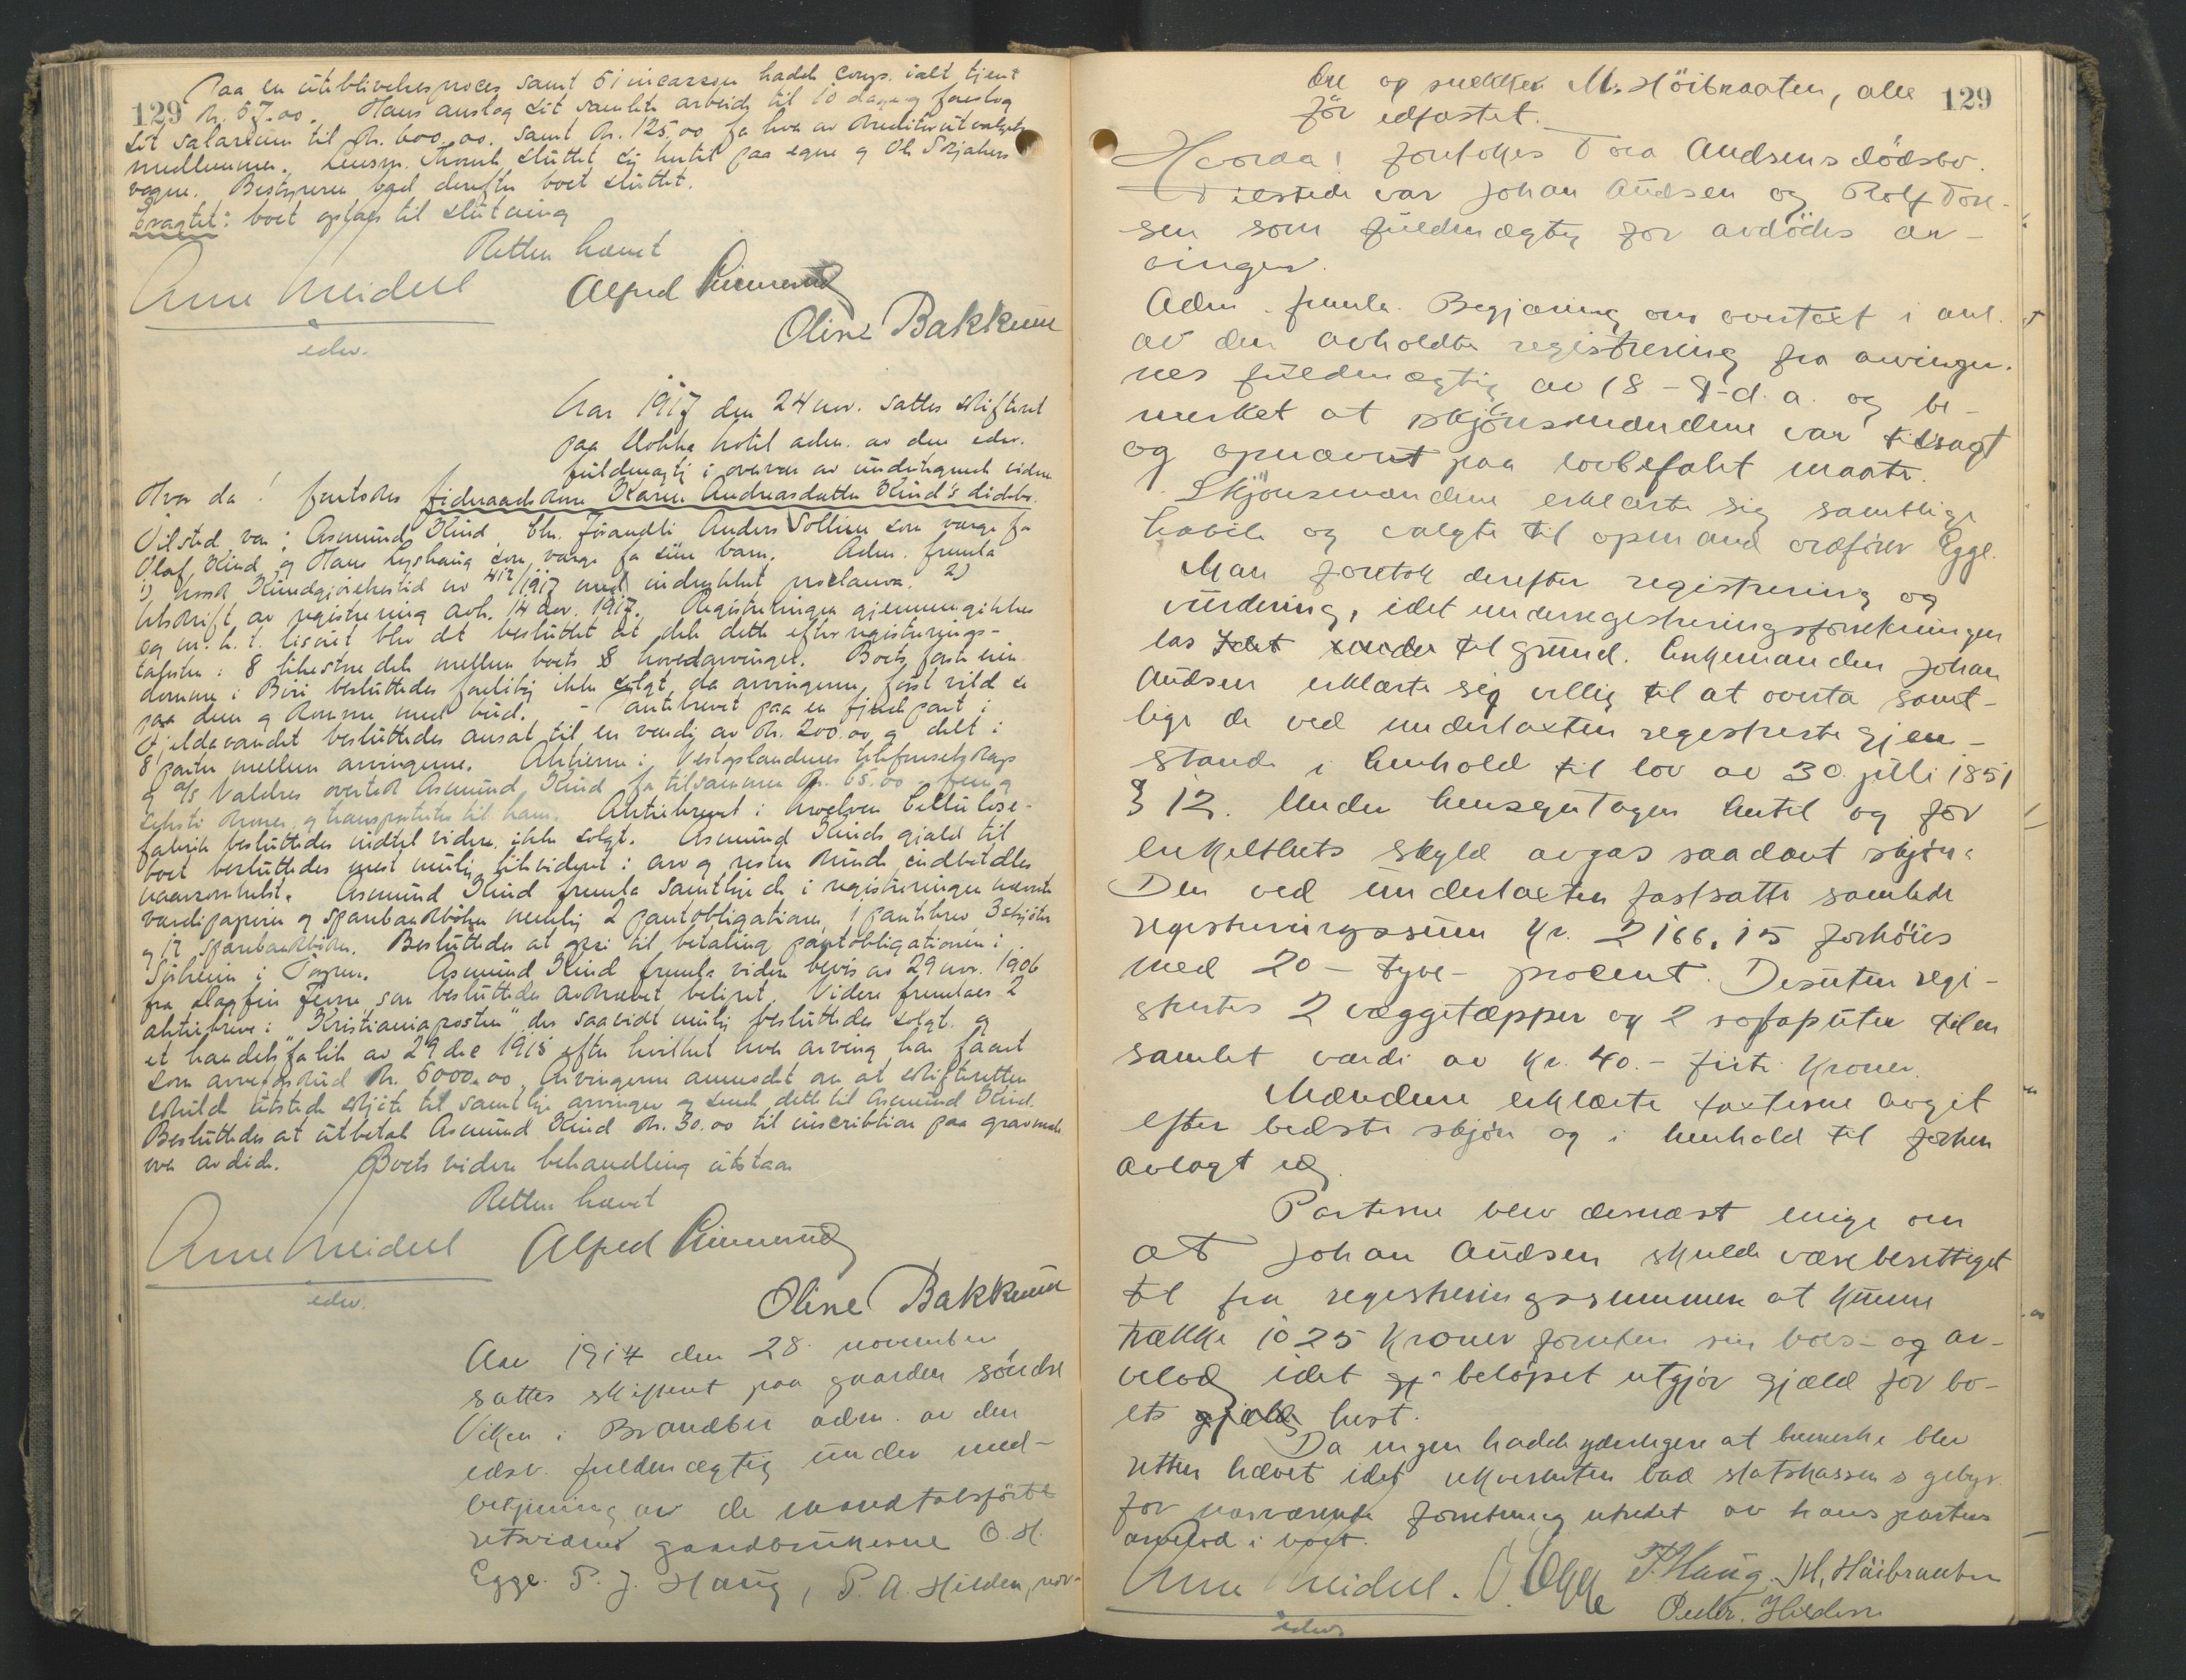 129
Paa en uteblivelsesproces samt 5 incasson hadde comp. ialt tjent
kr. 57.00. Hans anslog sit samlede arbeide til 10 dage og foreslog
sit salarium til kr. 600.00. samt kr. 125.00 for hver av kreditorutvalgets
medlemmer. Lensm. sluttet sig hertil paa egne og Ol. vegne
vegne. Bestyreren bad derefter boet sluttet.
boet optages til slutning
Retten hævet
Arne Meidell
edsv.
Alfred
Oline Bakkum
Aar 1917 den 24 nov. sattes skifteret
paa hotel adm. av den edsv.
fuldmægtig i overvær av undertegnede vidner
Hvor da! foretokes Karen Andreasdatter Kind's dødsbo.
Tilstede var: Asmund Kind, Anders Sollien som verge for
Olaf Kind og Hans som verge for sine barn. Adm. fremla
1) Norsk Kundgjørelsestid. av 1917 med indrykket proclama. 2)
Utskrift av registrering avh. 14 nov. 1917. Registreringen gjennemgikkes
og m. h. t. blev det besluttet at dele dette efter registrerings-
taksten: 8 like store dele mellem boets 8 hovedarvinger. Boets faste eien-
domme i Biri besluttedes foreløbig ikke solgt, da arvingerne først vilde se
paa dem og komme med bud. - Pantebrevet paa en fjerdepart i
Fjeldavandet besluttedes ansat til en verdi av kr. 200.00 og delt i
8 parter mellem arvingerne. Aktierne i Vestoplandenes telefonselskap
og a/s Valdres overtok Asmund Kind for tilsammen kr. 65.00 - fem og
seksti kroner og transporteres til ham. Aktiebrevet i cellulose-
fabrik besluttedes indtil videre ikke solgt. Asmund Kinds gjæld til
boet besluttedes mest mulig likvidert i arv og resten kunde indbetales
naarsomhelst. Asmund Kind fremla samtlige de i registreringen nævnte
værdipapirer og sparebankbøker nemlig 2 pantobligationer, 1 pantebrev 3 skjøter
og 17 sparebankbøker. Besluttedes at opsi til betaling pantobligationen i
Asmund Kind fremla videre bevis av 29 nov. 1906
fra som besluttedes avkrævet beløpet. Videre fremlaes 2
aktiebreve i "Kristianiaposten" der saavidt mulig besluttedes solgt. og
et av 29 dec 1915 efter hvilket hver arving har faaet
som arveforskud kr. 5000.00. Arvingerne anmodet om at skifteretten
skulde utstede skjøte til samtlige arvinger og sende dette til Asmund Kind.
Besluttedes at utbetale Asmund Kind kr. 30.00 til inscribtion paa gravmæle
over avdøde. Boets videre behandling utstaar
Retten hævet
Arne Meidell
edsv.
Alfred
Oline Bakkum
Aar 1917 den 28. november
sattes skifteret paa gaarden søndre
Viken i Brandbu adm. av den
edsv. fuldmægtig under med-
betjening av de mandtalsførte
retsvidner gaardbrukerne O. H.
Egge. P. J. Haug, P. A. Hilden,
129
og snekker M. Höibraaten, alle
för edfæstet.
Hvorda! foretokes Tora Audsens dödsbo.
Tilstede var Johan Audsen og Rolf Tore-
sen som fuldmægtig for avdödes ar-
vinger.
Adm. fremla Begjæring om overtaxt i anl.
av den avholdte registrering fra arvinger-
nes fuldmægtig av 18-8-d.a. og be-
merket at skjönsmændene var tilsagt
og opnævnt paa lovbefalet maate.
Skjönsmændene erklærte sig samtlige
habile og valgte til opmand ordförer Egge.
Man foretok derefter registrering og
vurdering, idet underregistreringsforretningen
las til grund. Enkemanden Johan
Audsen erklærte sig villig til at overta samt-
lige de ved undertaxten registrerte gjen-
stande i henhold til lov av 30. juli 1851
§ 12. Under hensyntagen hertil og for
enkelthets skyld avgas saadant skjön:
Den ved undertaxten fastsatte samlede
registreringssum Kr. 2166.15 forhöies
med 20 - tyve - procent. Desuten regi-
strertes 2 væggetæpper og 2 sofaputer til en
samlet værdi av kr. 40.- firti kroner.
Mændene erklærte taxterne avgit
efter bedste skjön og i henhold til forhen
avlagt ed.
Parterne blev dernæst enige om
at Johan Audsen skulde være berettiget
til fra registreringssummen at kunne
trække 1025 kroner foruten sin boes- og ar-
velod, idet beløpet utgjör gjæld for bo-
ets
Da ingen hadde yderligere at bemerke blev
retten hævet idet rekvirenten bad statskassens gebyr
for nærværende forretning utredet av hans parters
arvelod i boet.
Arne Meidell. O. Egge P. J. Haug. M. Höibraaten
edsv. Peder. Hilden